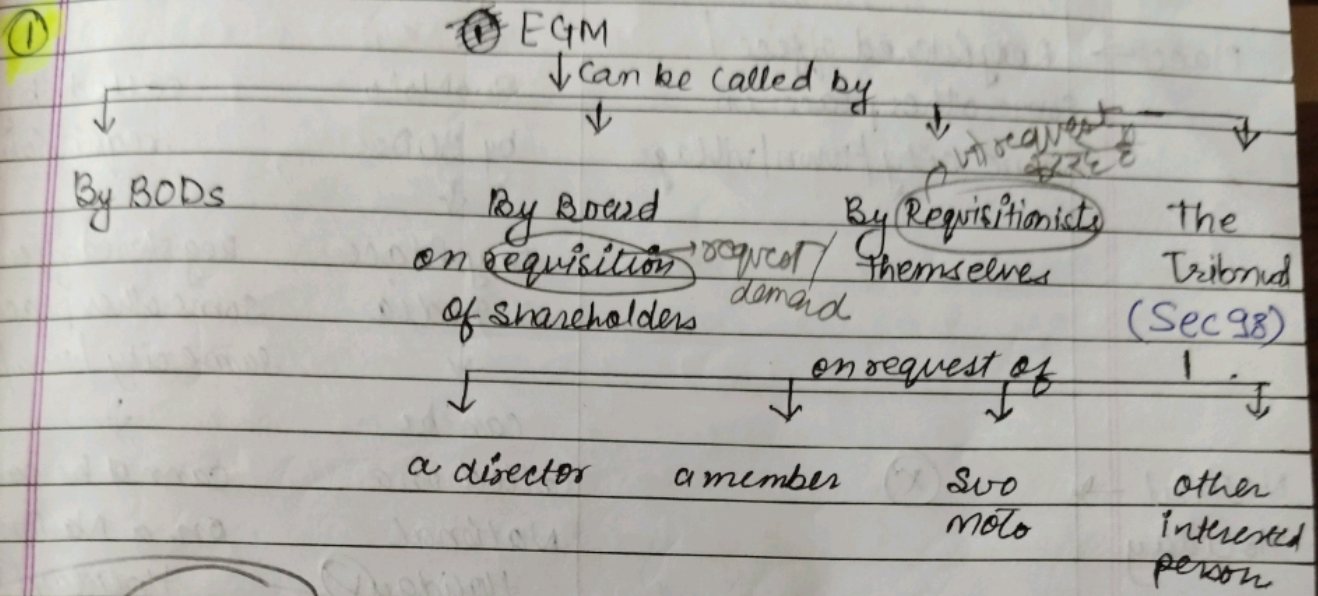 ① EGM
↓ can be called by
By BODs
By Board
on requisition → request /
demand
of shareholders
By Requisitionists
themselves
request
The
Tribunal
(Sec 98)
on request of
a director
a member
suo
moto
other
interested
person